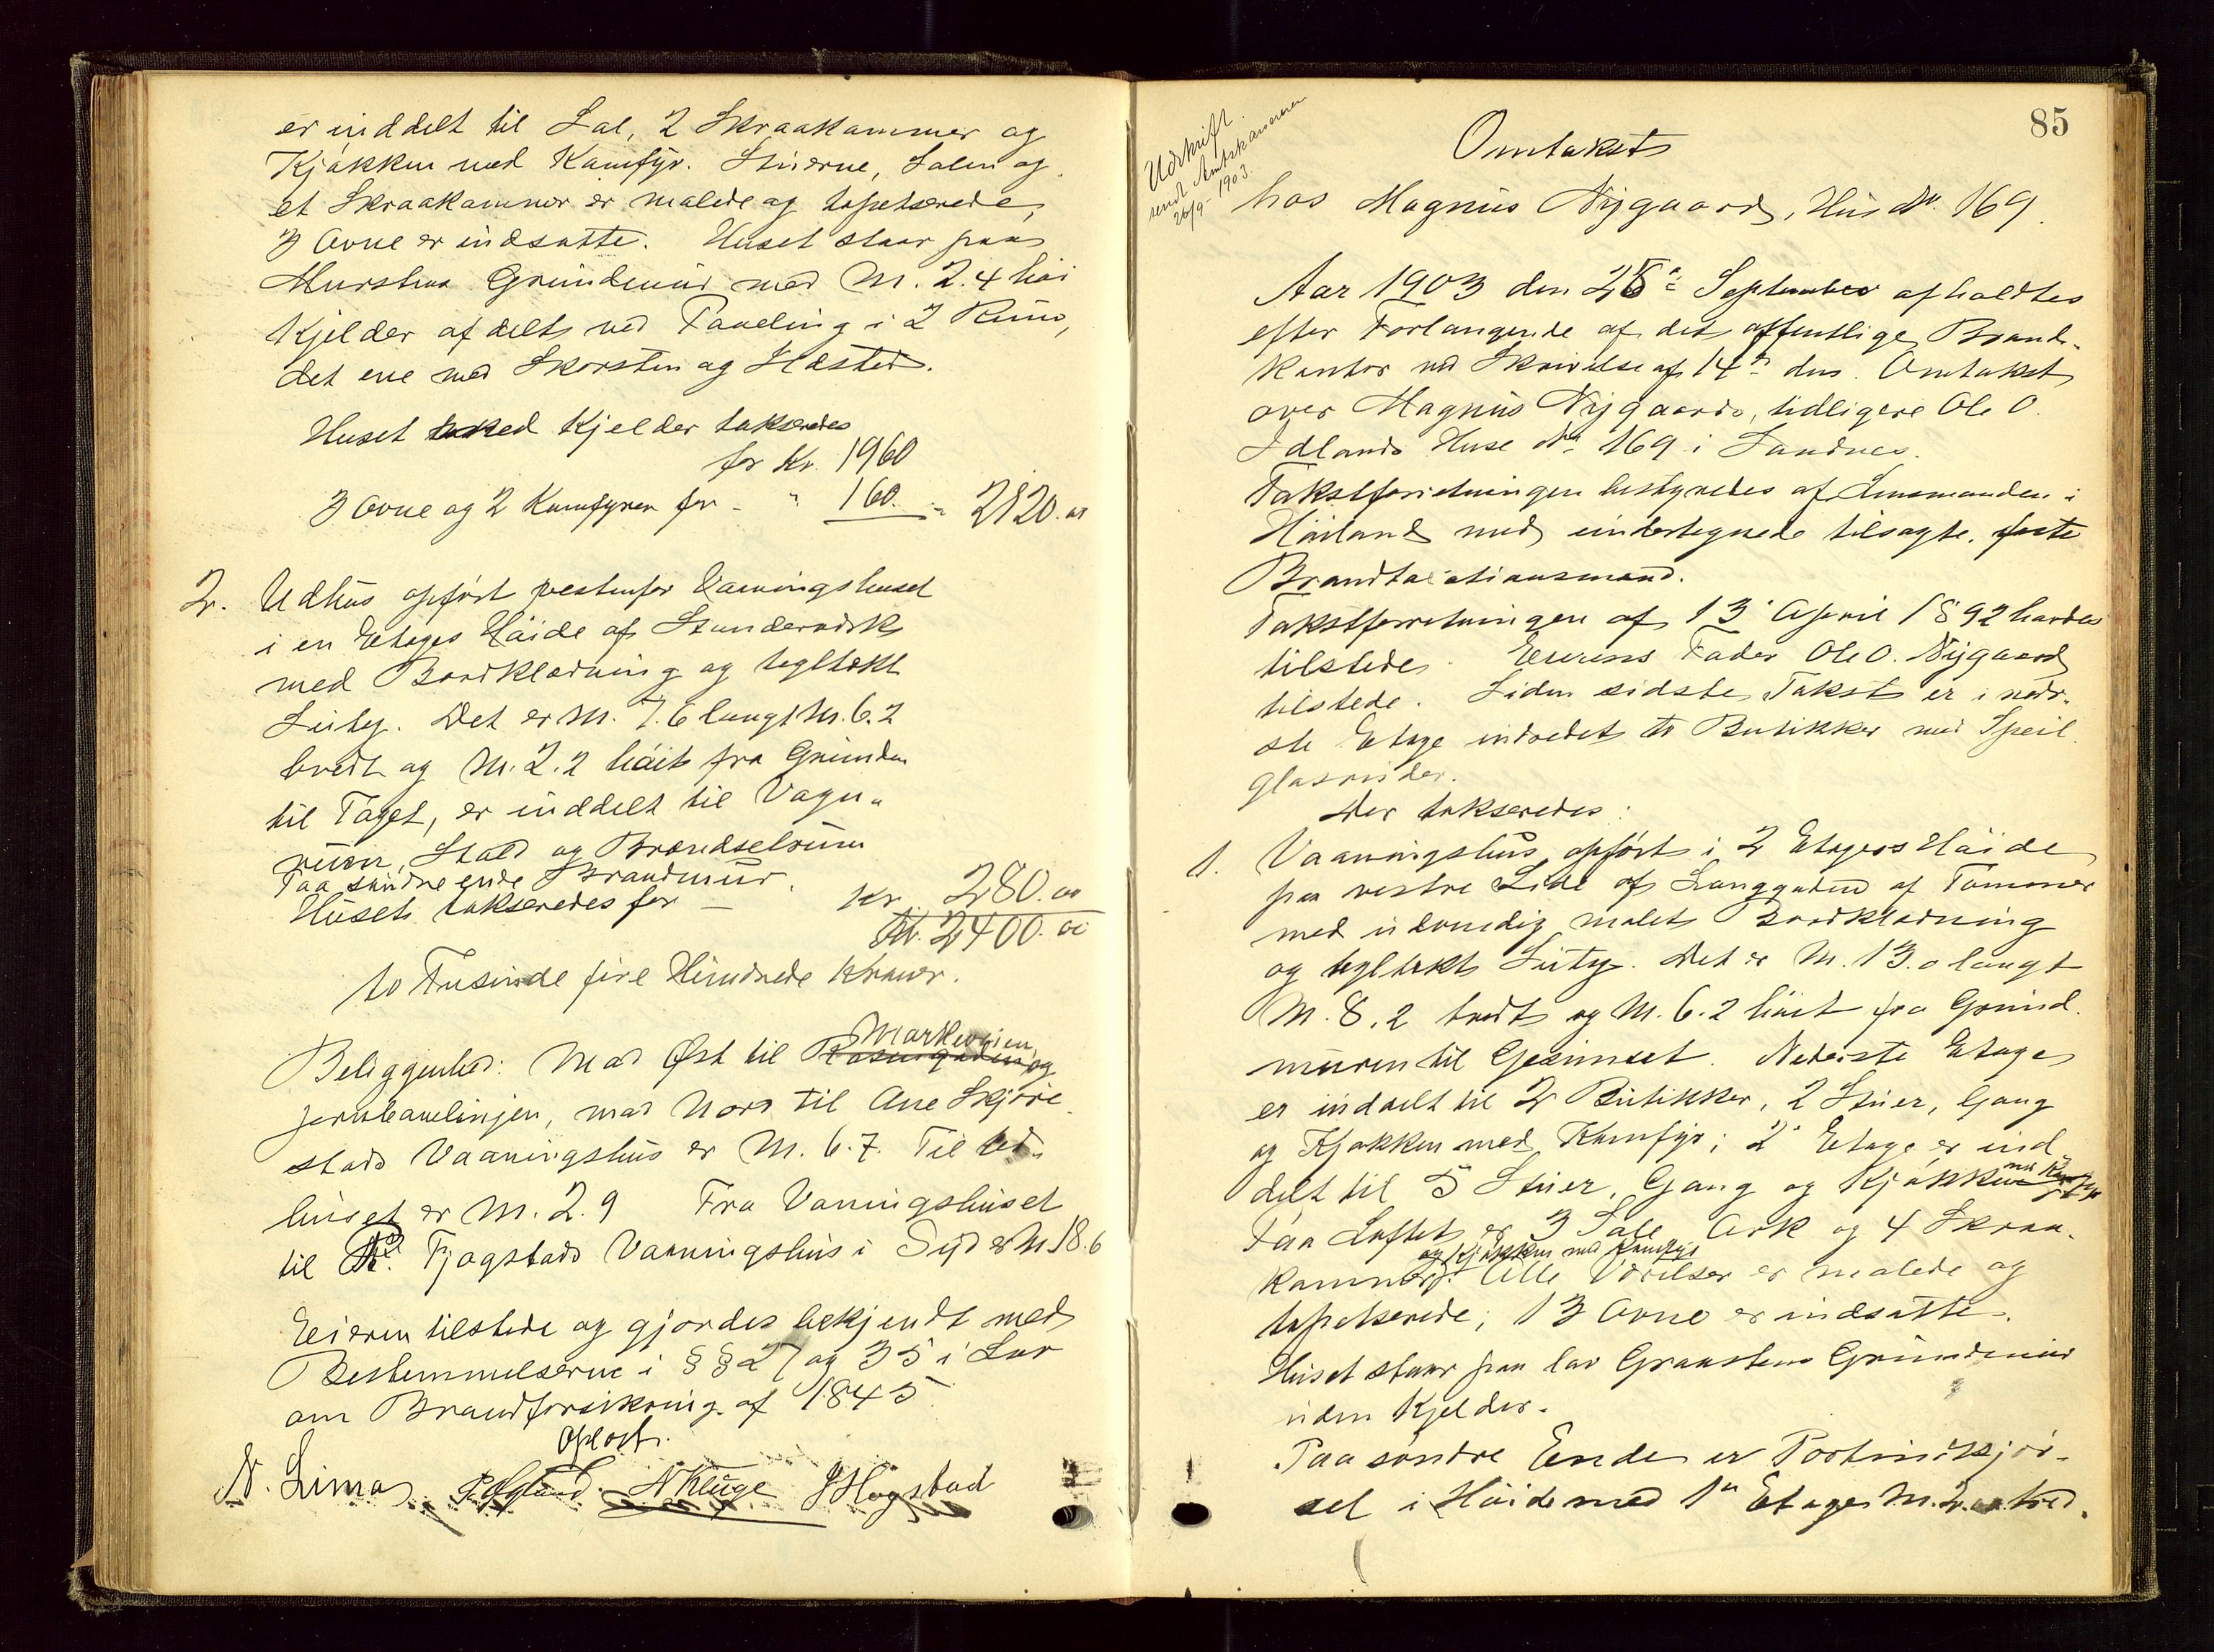 er inddelt til Sal, 2 Skraakammer og
Kjøkken med Kamfyr. Stuerne, Salen og
et Skraakammer er malede og tapetserede,
3 Ovne er indsatte. Huset staar paa
Murstens Grundmur med M. 2.4 høi
Kjelder afdelt ved Paneling i 2 Rum,
det ene med Skorsten og Ildsted.
Huset med Kjelder takseredes
for Kr. 1960
3 Ovne og 2 Kamfyrer for - " 160. = 2120.00
2. Udhus opført vestenfor Vaaningshuset
i en Etages Høide af Stenderværk
med Bordklædning og tegltækt
Sutag. Det er M. 7.6 langt M. 6.2
bredt og M. 2.2 høit fra Grunden
til Taget, er inddelt til Vogn-
rum, Stald og Brændselrum
Paa søndre ende Brandmur.
Huset takseredes for - Kr. 280.00
Kr. 2400.00
to Tusinde fire Hundrede Kroner.
Markveien
Beliggenhed: Mod Øst til og
Jernbanelinjen, mod Nord til Ane Skjøre-
stads Vaaningshus er M. 6.7. Til Ud-
huset er M. 2.9 Fra Vaningshuset
til Tjøgstads Vaaningshus i Syd er M 18.6
Eieren tilstede og gjordes bekjendt med
Bestemmelserne i §§ 27 og 35 i Lov
om Brandforsikring af 1845.
Oplæst.
N. Lima N Kluge J Høgstad
85
Udskrift
sendt Amtskasseren
26/9-1903.
Omtakst
hos Magnus Nygaard, Hus No. 169.
Aar 1903 den 25de September afholdtes
efter Forlangende af det offentlige Brand-
kontor ved Skrivelse af 14de dns. Omtakst
over Magnus Nygaards, tidligere Ole O.
Idlands Huse No 169 i Sandnes.
Takstforretningen bestyredes af Lensmanden i
Høiland med undertegnede tilsagte, faste
Brandtaxationsmænd.
Takstforretningen af 13 April 1892 havdes
tilstede. Eierens Fader Ole O. Nygaard
tilstede. Siden sidste Takst er i neder-
ste Etage indredet to Butikker med Speil-
glasruder.
Der takseredes:
1. Vaaningshus, opført i 2 Etagers Høide
paa vestre Side af Langgaden af Tømmer
med udvendig malet Bordklædning
og tegltækt Sutag. Det er M. 13.0 langt
M. 8.2 bredt og M. 6.2 høit fra Grund-
muren til Gesimset. Nederste Etage
er inddelt til 2 Butikker, 2 Stuer, Gang
og Kjøkken med Kamfyr; 2' Etage er ind-
delt til 5 Stuer, Gang og Kjøkken med Kamfyr
Paa Loftet er 3 Sale Ark og 4 Skraa-
og Kjøkken med Kamfyr
kammer. Alle Værelser er malede og
tapetserede; 13 Ovne er indsatte.
Huset staar paa lav Graastens Grundmur
uden Kjelder.
Paa søndre Ende er Portindkjør-
sel i Høide med 1ste Etage M. bred.